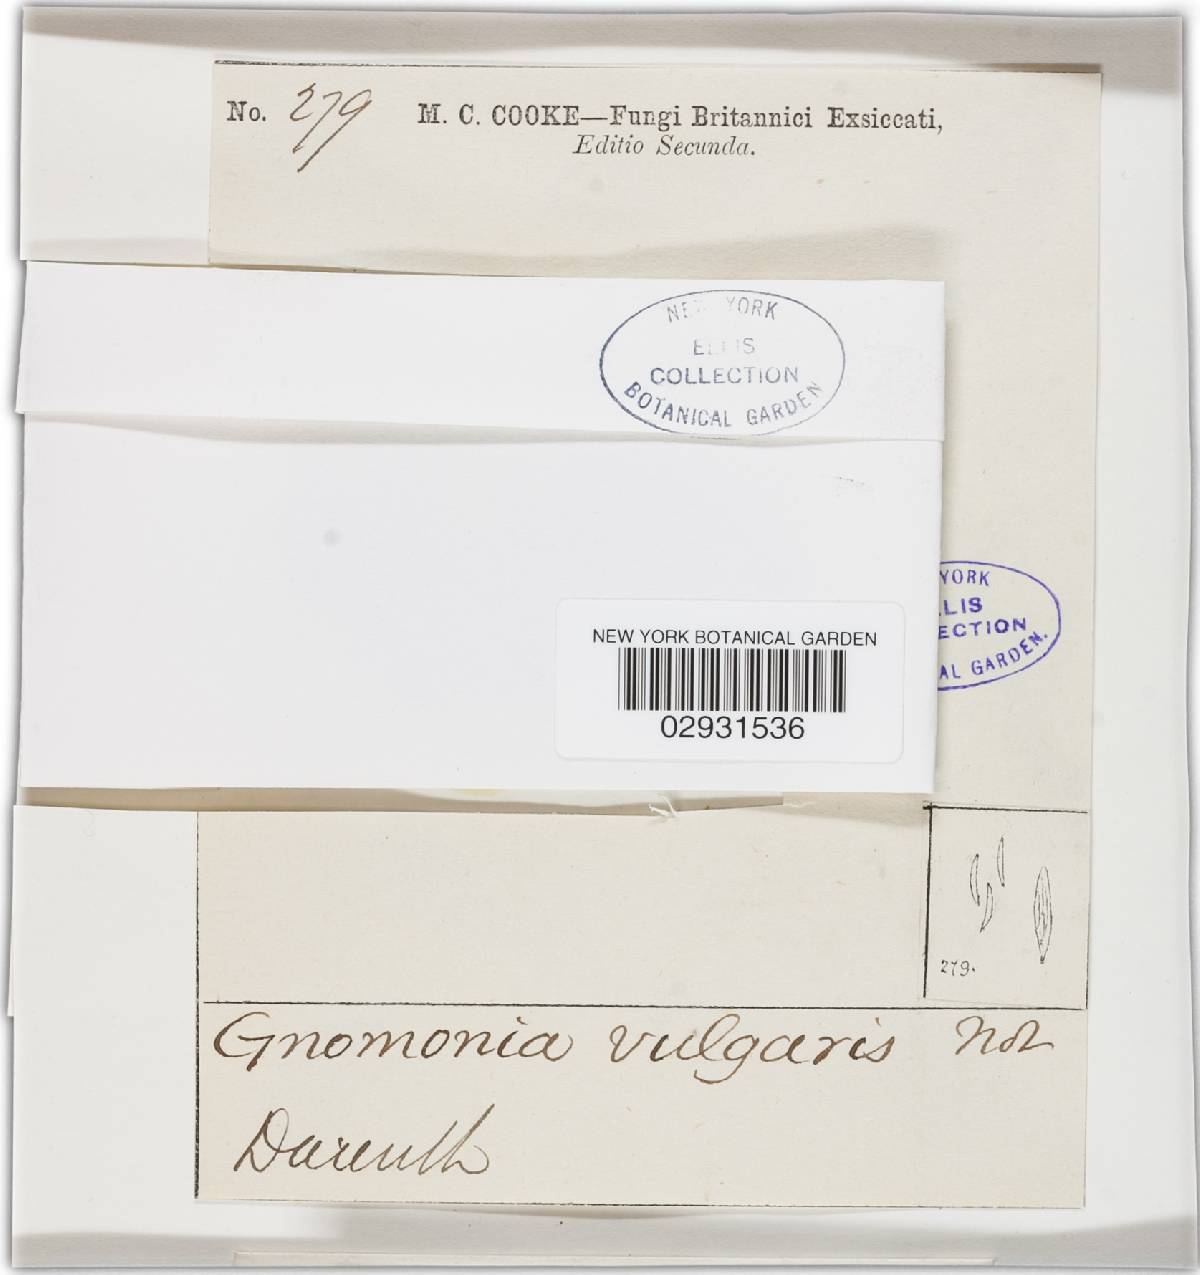 No. 279 M. C. COOKE—Fungi Britannici Exsiccati,
Editio Secunda.
NEW YORK
ELLIS
COLLECTION
BOTANICAL GARDEN
YORK
LIS
ECTION
AL GARDEN.
NEW YORK BOTANICAL GARDEN
02931536
279.
Gnomonia vulgaris Not
Darenth